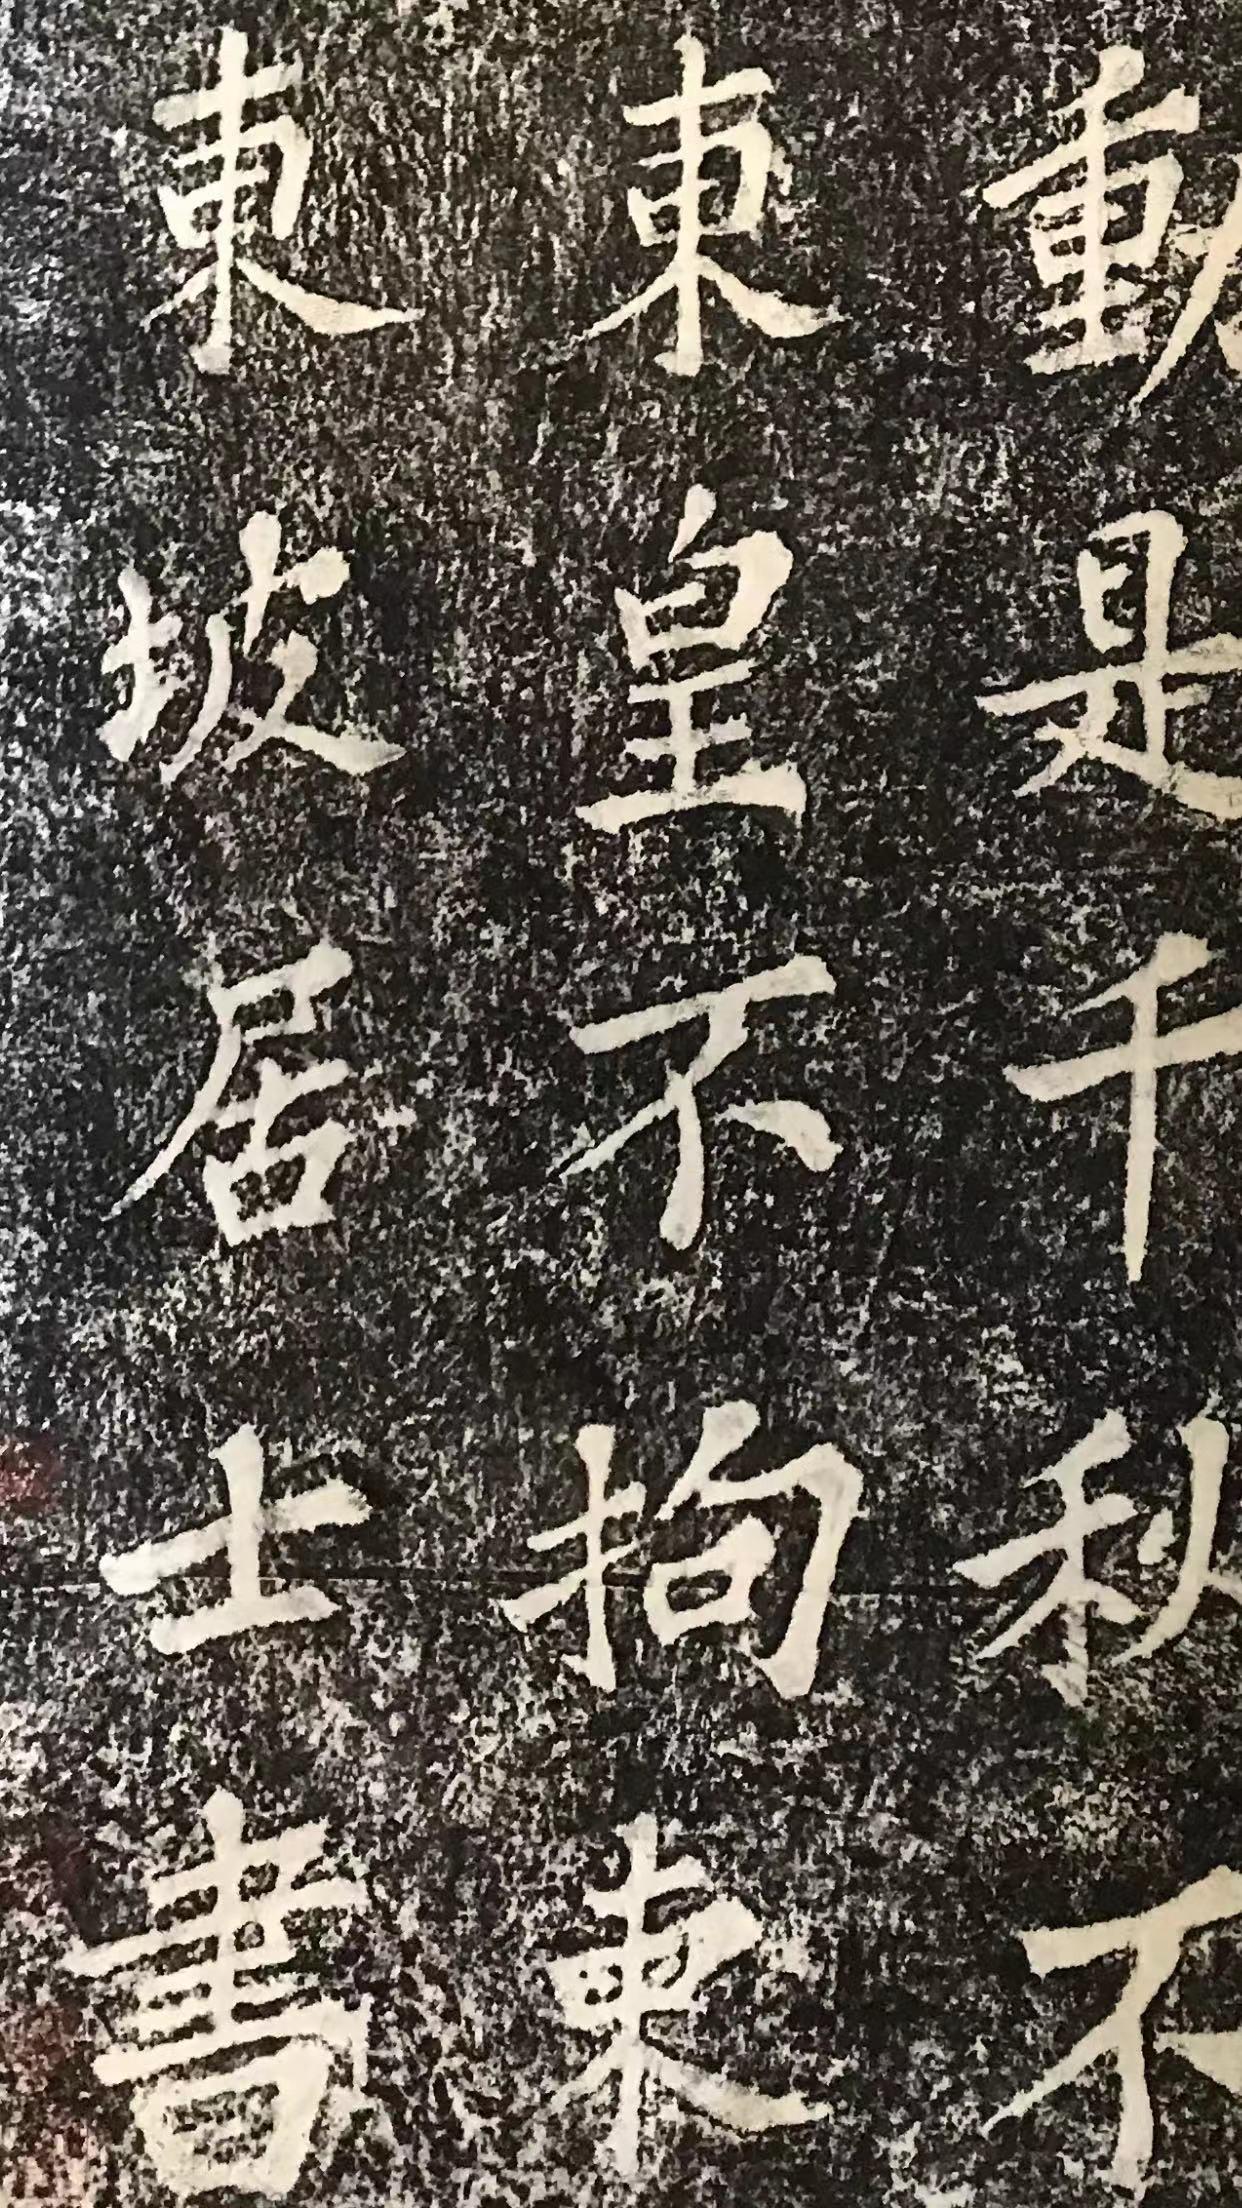 動是千秋不
東皇不拘束
東坡居士書